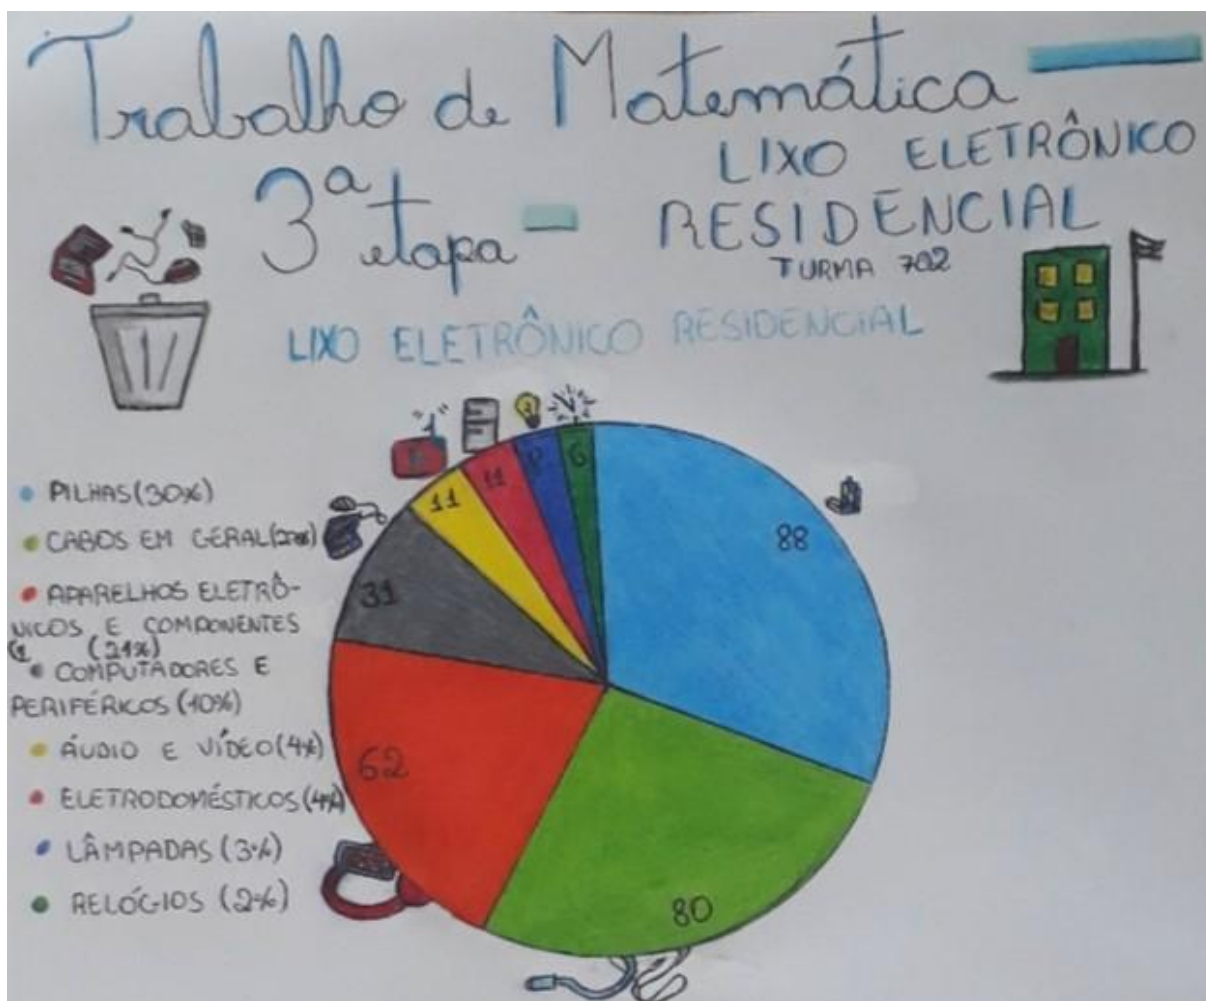 Trabalho de Matemática
3ª etapa
LIXO ELETRÔNICO
RESIDENCIAL
TURMA 702
LIXO ELETRÔNICO RESIDENCIAL
PILHAS (30%)
CABOS EM GERAL (27%)
APARELHOS ELETRÔ-
NICOS E COMPONENTES
(21%)
COMPUTADORES E
PERIFÉRICOS (10%)
ÁUDIO E VÍDEO (4%)
ELETRODOMÉSTICOS (4%)
LÂMPADAS (3%)
RELÓGIOS (2%)
11
11
8
6
88
31
62
80